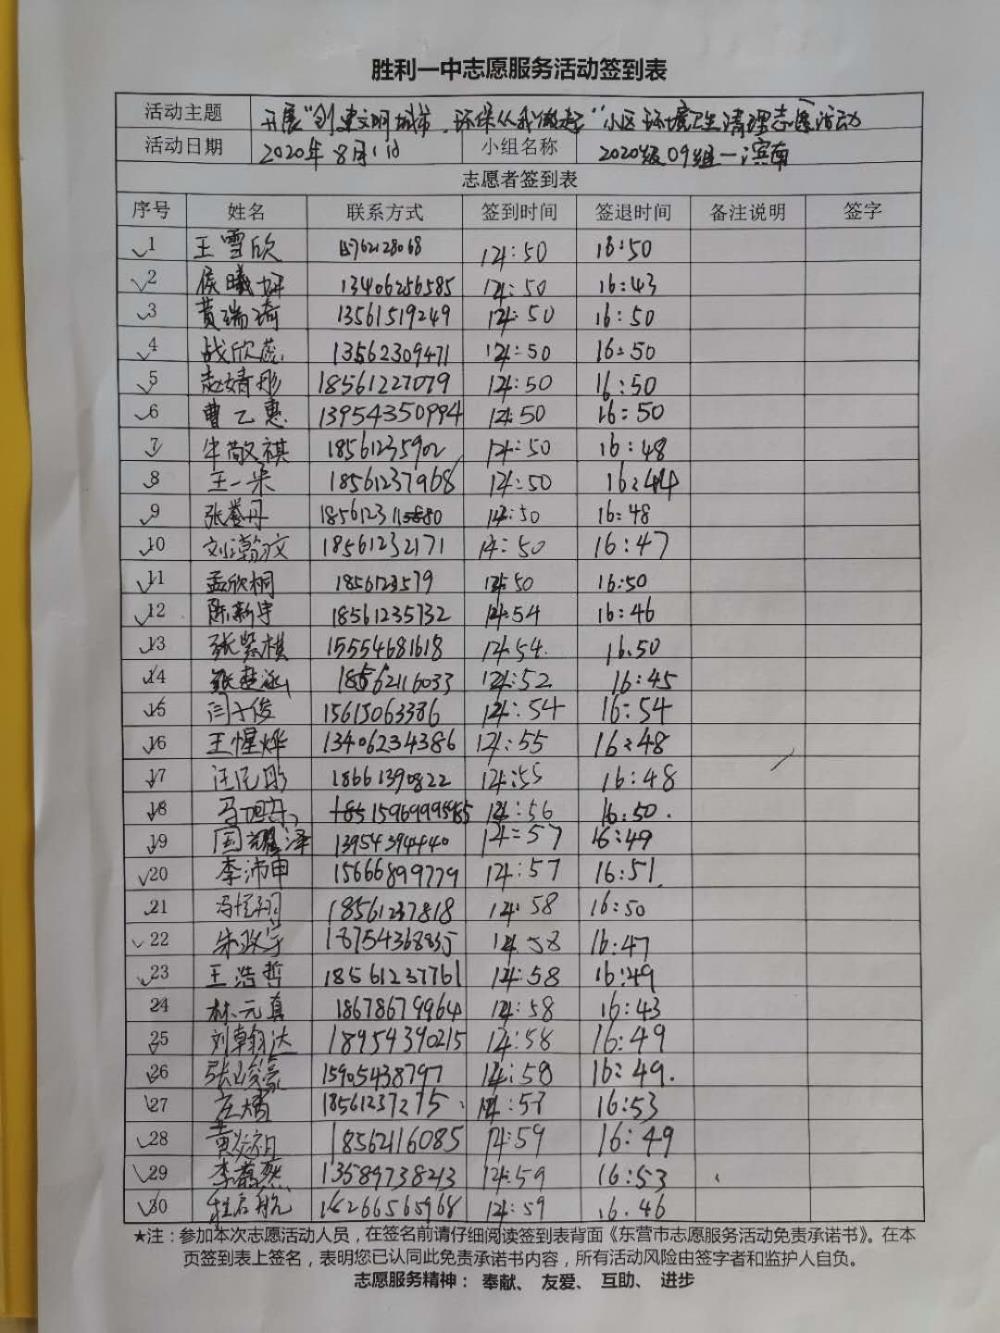 胜利一中志愿服务活动签到表
活动主题 开展“创建文明城市，环保从我做起”小区环境卫生清理志愿活动
活动日期 2020年8月1日 小组名称 2020级09组一滨南
志愿者签到表
序号 姓名 联系方式 签到时间 签退时间 备注说明 签字
1 王雪欣 14:50 16:50
2 侯曦妍 13406256585 14:50 16:43
3 黄瑞琦 13561519249 14:50 16:50
4 战欣蕊 13562309471 14:50 16:50
5 赵婧彤 18561227079 14:50 16:50
6 曹乙惠 13954350994 14:50 16:50
7 牛敬祺 18561235902 14:50 16:48
8 王一 18561237968 14:50 16:44
9 张誉丹 14:50 16:48
10 刘瀚文 18561232171 14:50 16:47
11 孟欣桐 1856123579 14:50 16:50
12 陈新宇 18561235732 14:54 16:46
13 张紫棋 15554681618 14:54 16:50
14 张楚涵 18562116033 14:52 16:45
15 闫子俊 15615063386 14:54 16:54
16 王惺烨 13406234386 14:55 16:48
17 18661390822 14:55 16:48
18 14:56 16:50
19 国耀泽 13954394440 14:57 16:49
20 李沛申 15666899779 14:57 16:51
21 冯恺翔 18561237818 14:58 16:50
22 朱政宇 18754368835 14:58 16:47
23 王浩哲 18561237761 14:58 16:49
24 林元真 18678679964 14:58 16:43
25 刘翰达 18954390215 14:58 16:49
26 张峻豪 15905438797 14:58 16:49
27 18561237275 14:57 16:53
28 18562116085 14:59 16:49
29 李 13589738213 14:59 16:53
30 程启航 14:59 16:46
★注：参加本次志愿活动人员，在签名前请仔细阅读签到表背面《东营市志愿服务活动免责承诺书》。在本
页签到表上签名，表明您已认同此免责承诺书内容，所有活动风险由签字者和监护人自负。
志愿服务精神： 奉献、 友爱、 互助、 进步